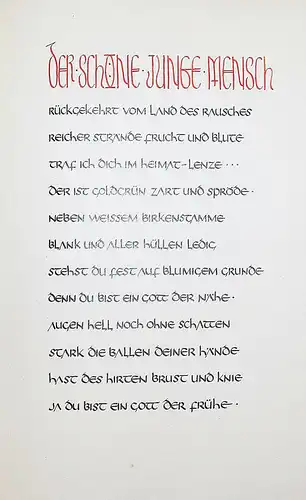 DER·SCHÖNE·JUNGE·MENSCH
RÜCKGEKEHRT VOM LAND DES RAUSCHES
REICHER STRÄNDE FRUCHT UND BLÜTE
TRAF ICH DICH IM HEIMAT-LENZE ···
DER IST GOLDGRÜN ZART UND SPRÖDE·
NEBEN WEISSEM BIRKENSTAMME
BLANK UND ALLER HÜLLEN LEDIG
STEHST DU FEST AUF BLUMIGEM GRUNDE
DENN DU BIST EIN GOTT DER NÄHE·
AUGEN HELL NOCH OHNE SCHATTEN
STARK DIE BALLEN DEINER HÄNDE
HAST DES HIRTEN BRUST UND KNIE
JA DU BIST EIN GOTT DER FRÜHE·